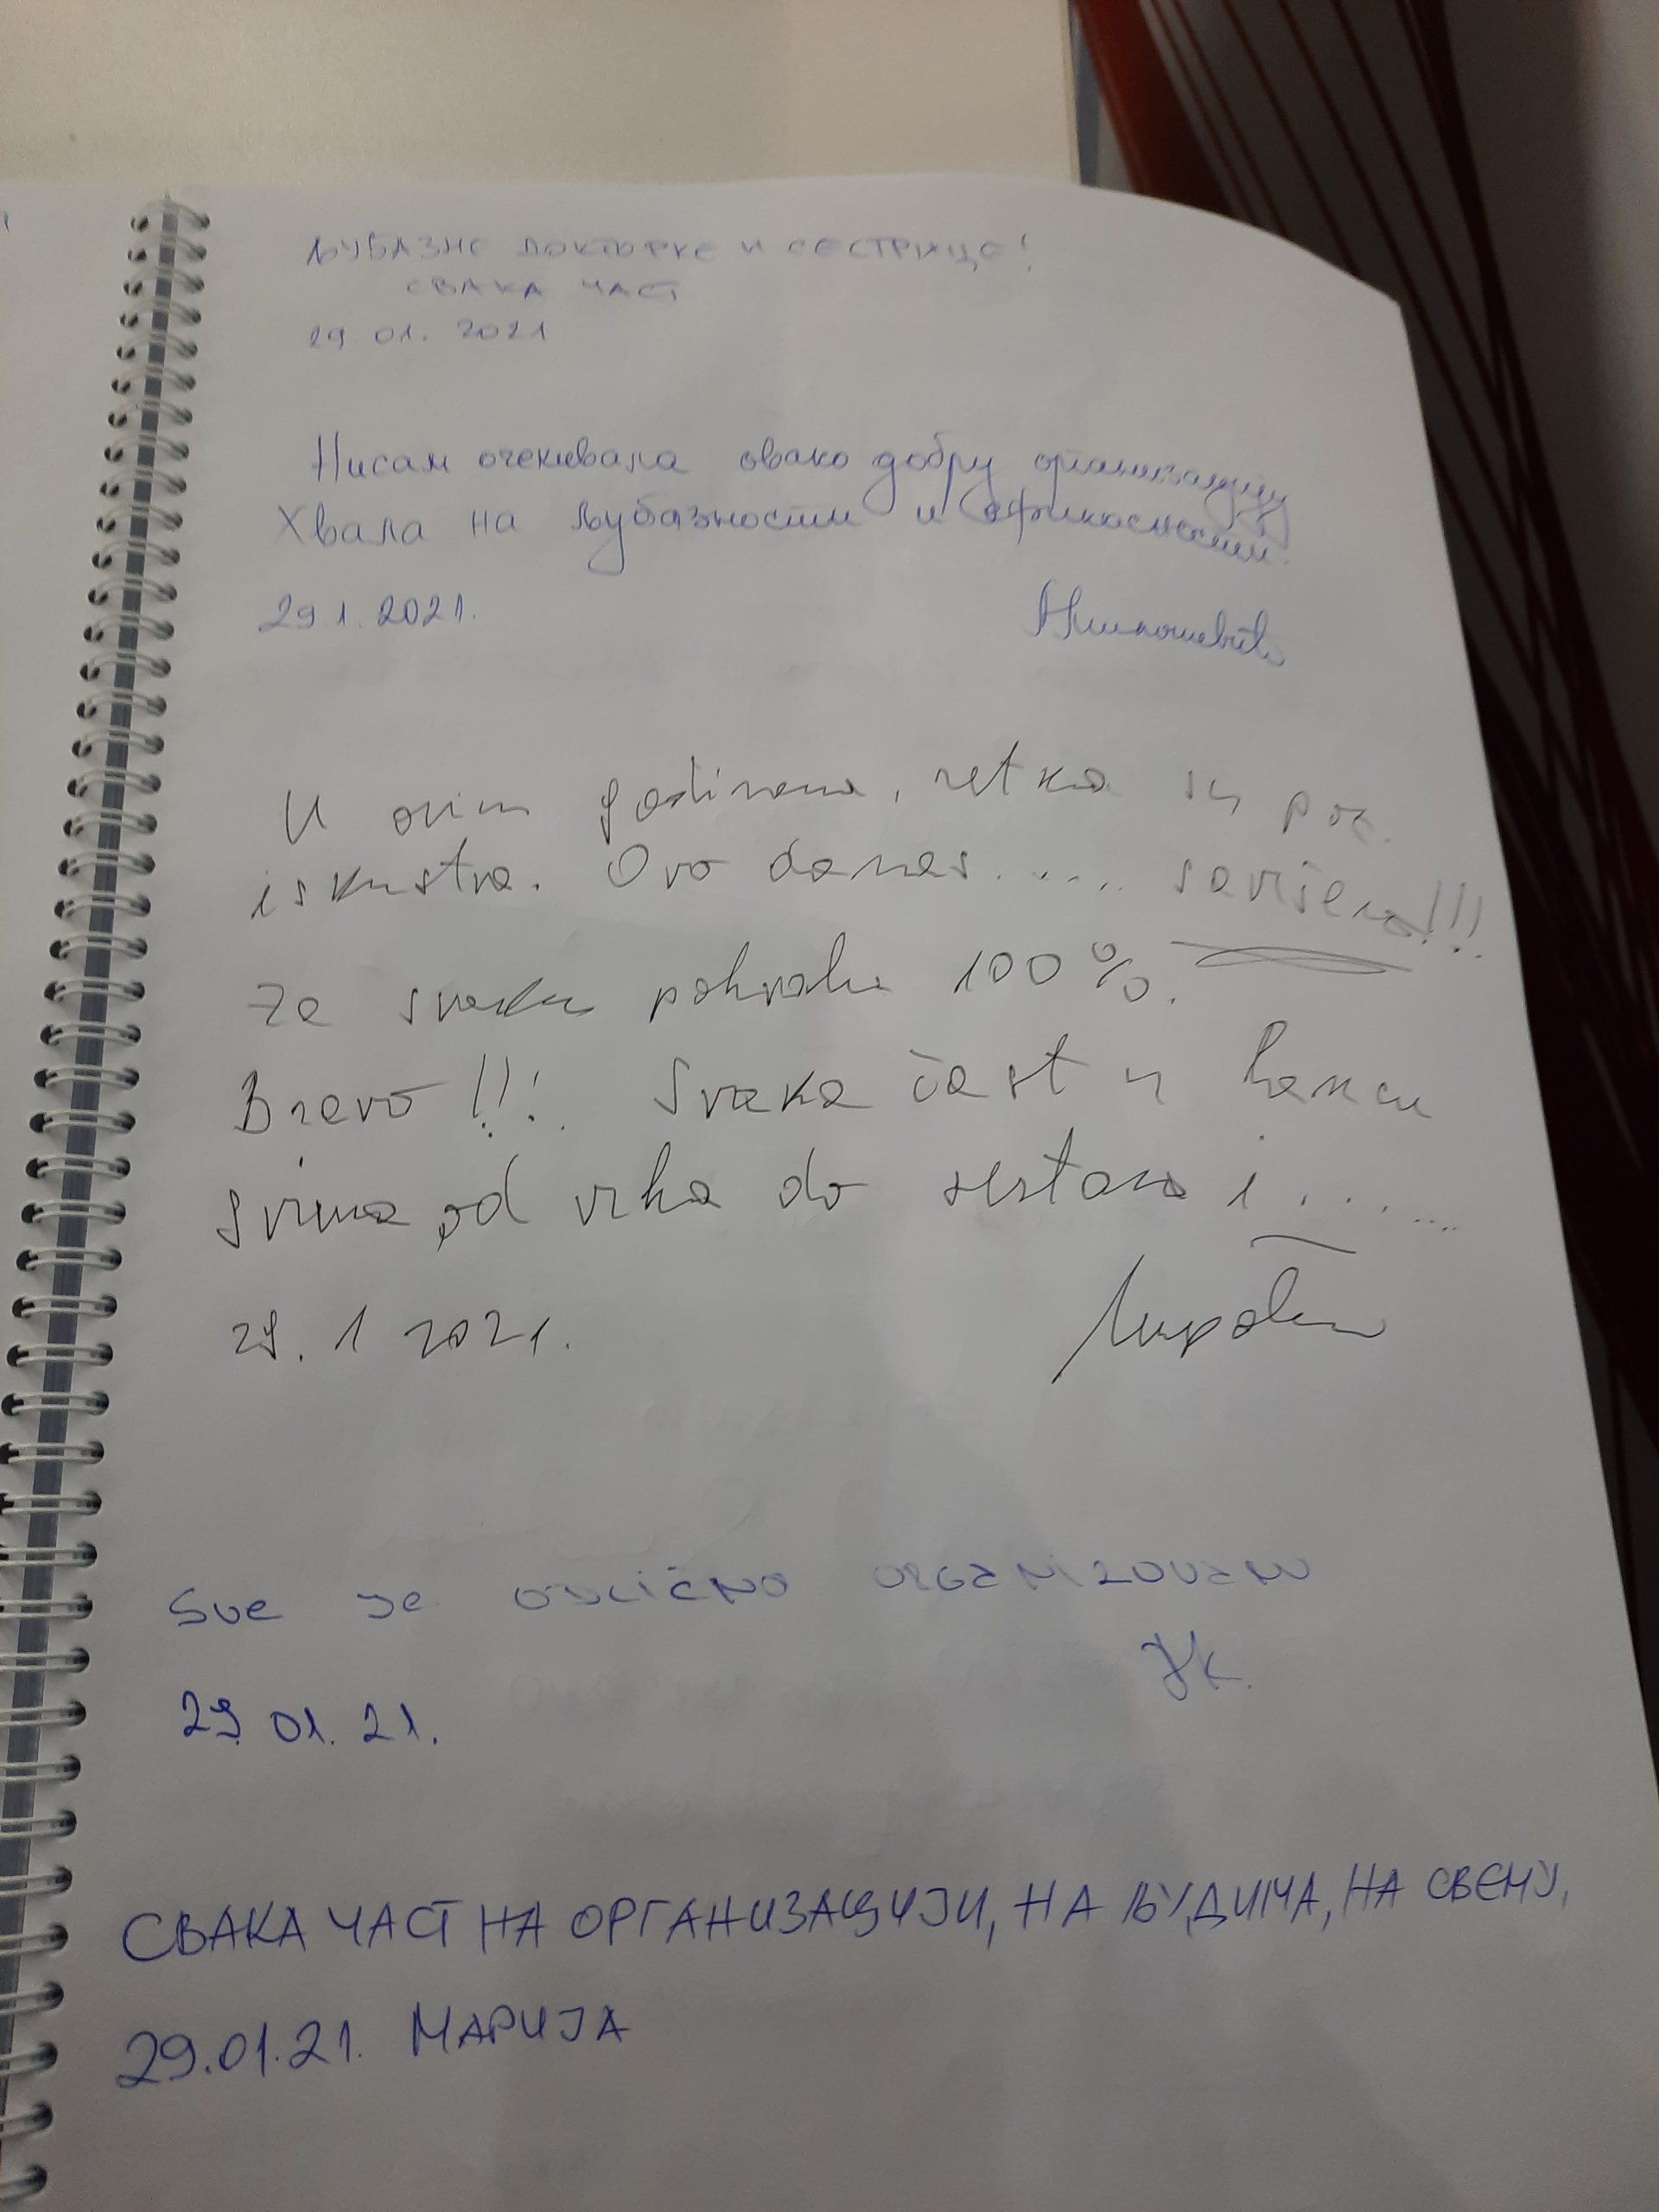 ЉУБАЗНЕ ДОКТОРКЕ И СЕСТРИЦЕ!
СВАКА ЧАСТ
29 01. 2021
Нисам очекивала овако добру организацију
Хвала на љубазности и ефикасности.
29 1. 2021.
U ovim godinama, retka su poz.
iskustva. Ovo danas..... savršeno!!!
Za svaku pohvalu 100%.
Bravo!!! Svaka čast u
svima, od vrha do sestara i ......
29. 1 2021.
Sve je odlično organizovano
JK.
29. 01. 21.
СВАКА ЧАСТ НА ОРГАНИЗАЦИЈИ, НА ЉУДИМА, НА СВЕМУ,
29.01.21. МАРИЈА